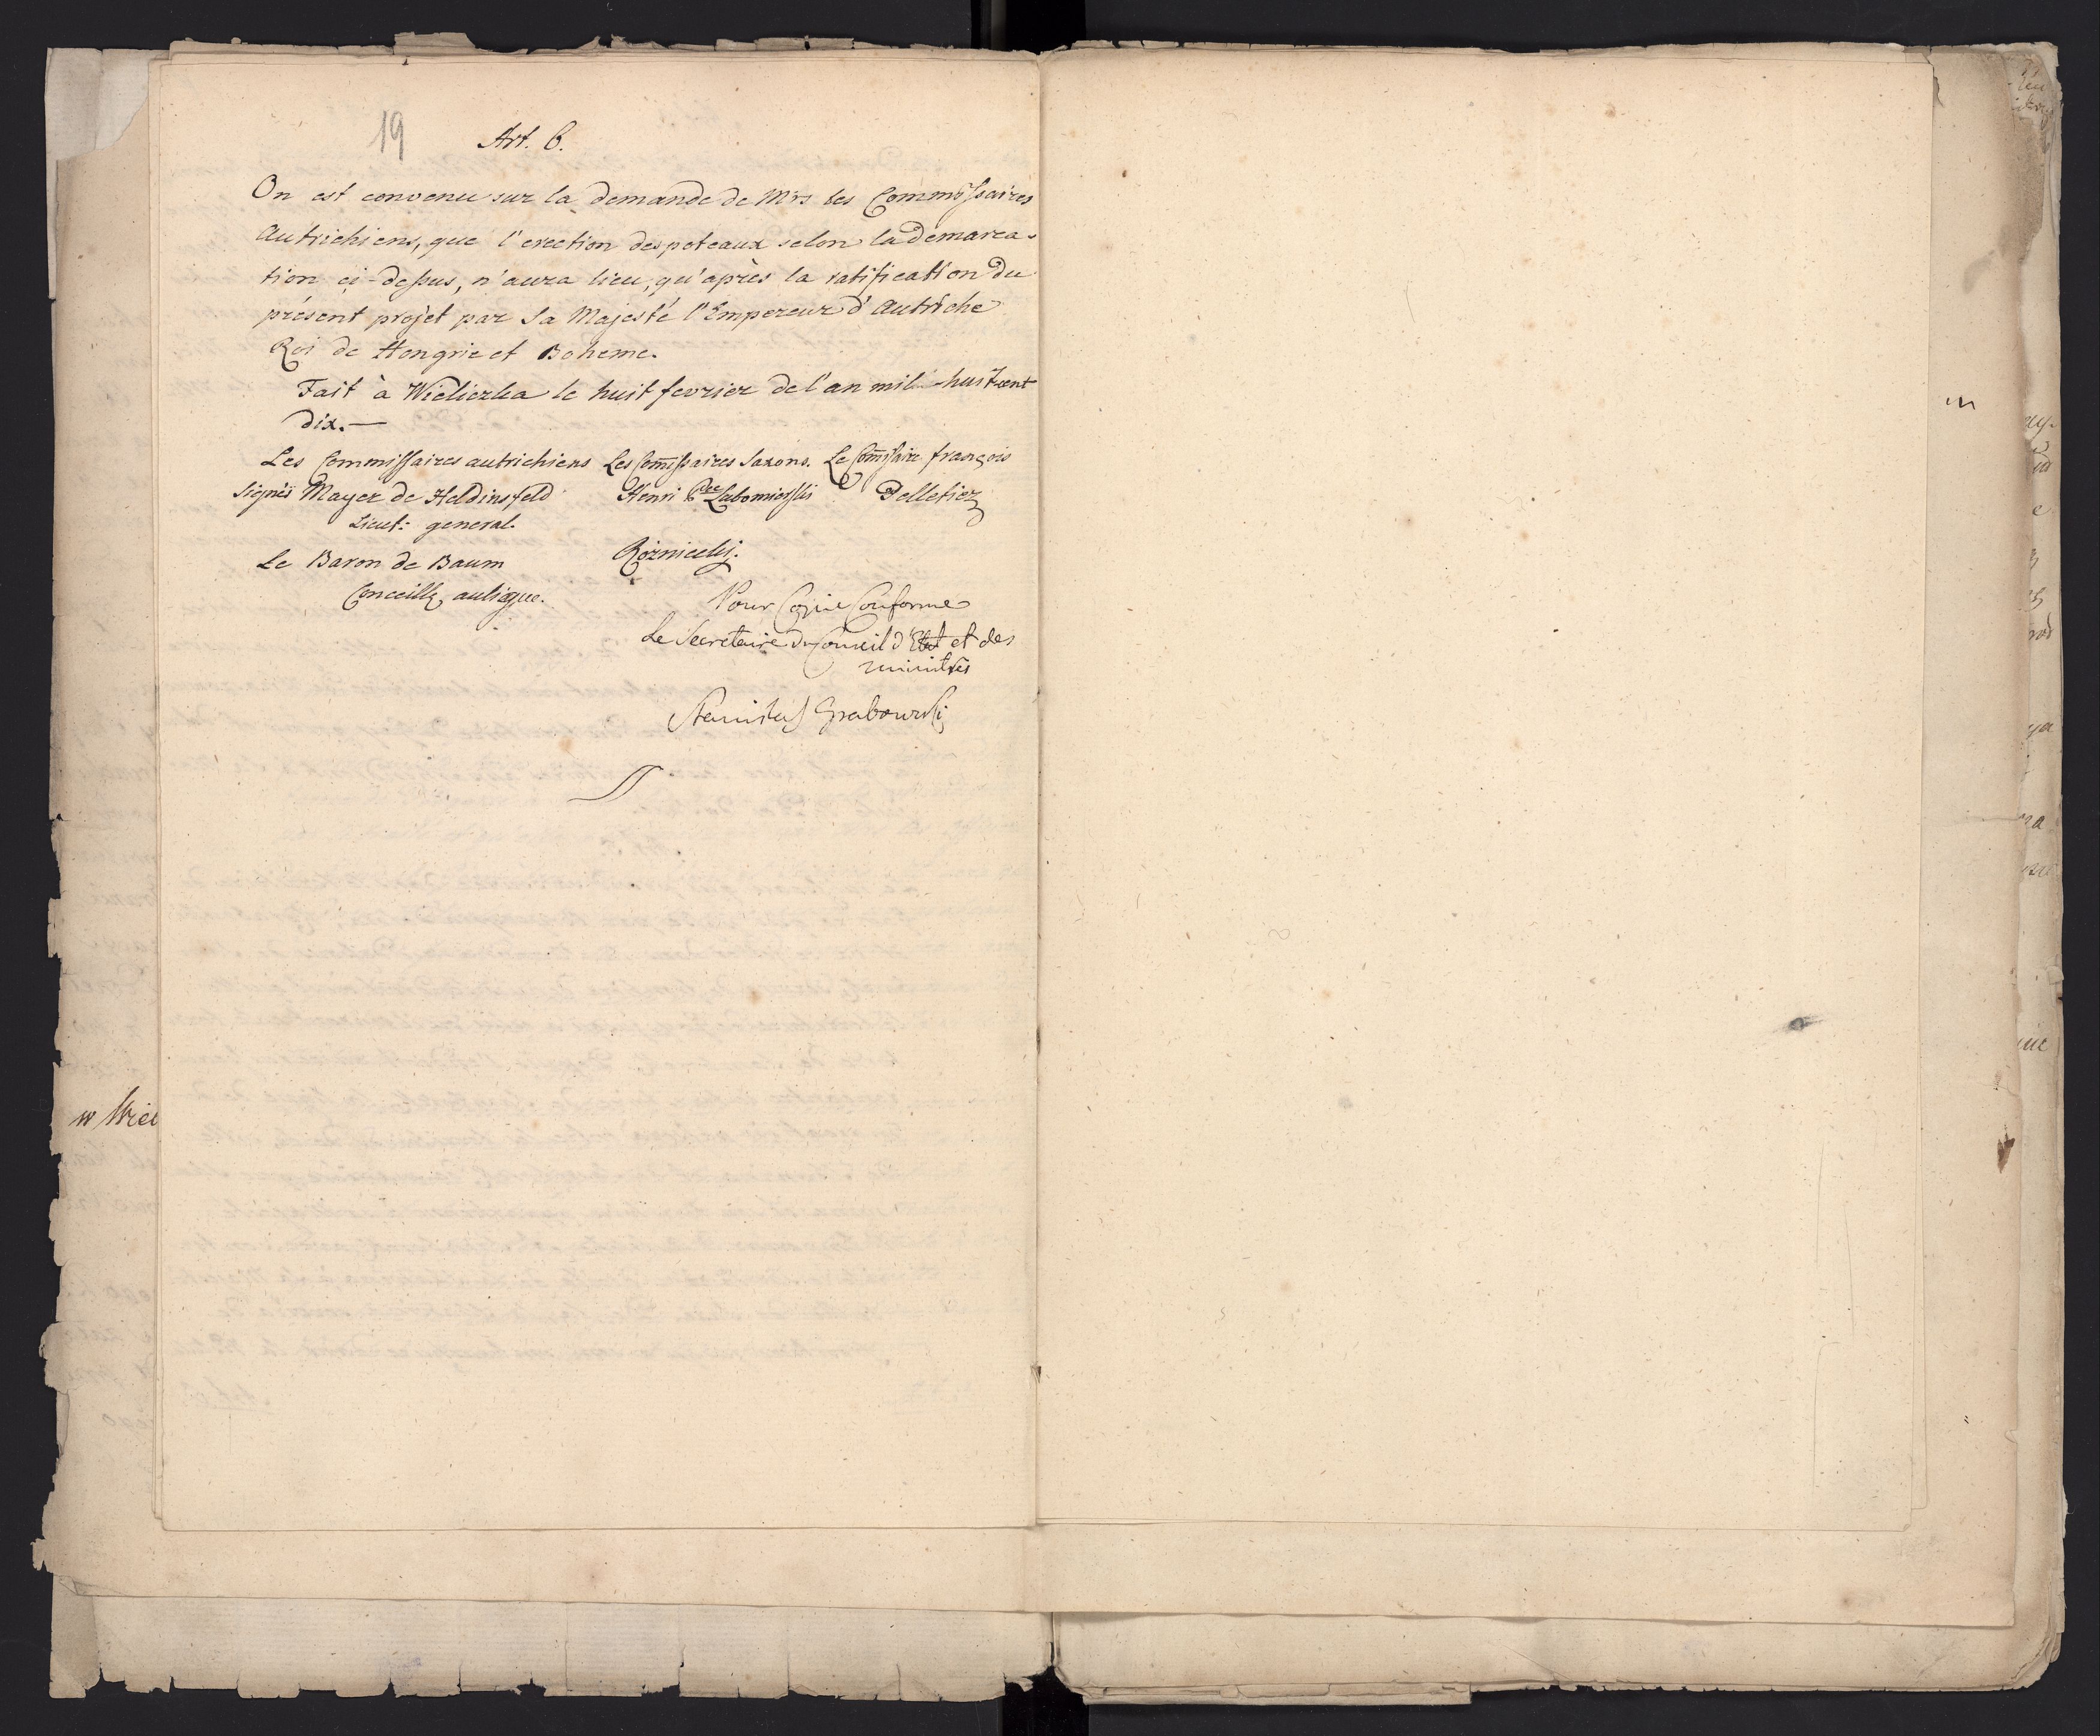 19
Art. 6.
On est convenu sur la demande de Mrs les Commissaires
Autrichiens, que l'erection des poteaux selon la demarca-
tion ci-dessus, n'aura lieu, qu'après la ratification du
présent projet par Sa Majesté l'Empereur d'Autriche
Roi de Hongrie et Boheme.
Fait à Wieliczka le huit fevrier de l'an mil huit cent
dix.—
Les Commissaires autrichiens Les Com̃issaires Saxons. Le Com̃issaire françois
signés Mayer de Heldinsfeld Henri Pce Lubomirski Pelletier
Lieut: general.
Le Baron de Baum Rożniecki.
Conceill. aulique.
Pour Copie Conforme
Le Secretaire du Conseil d'Etat et des
ministres
Stanislas Grabowski
w Wiel